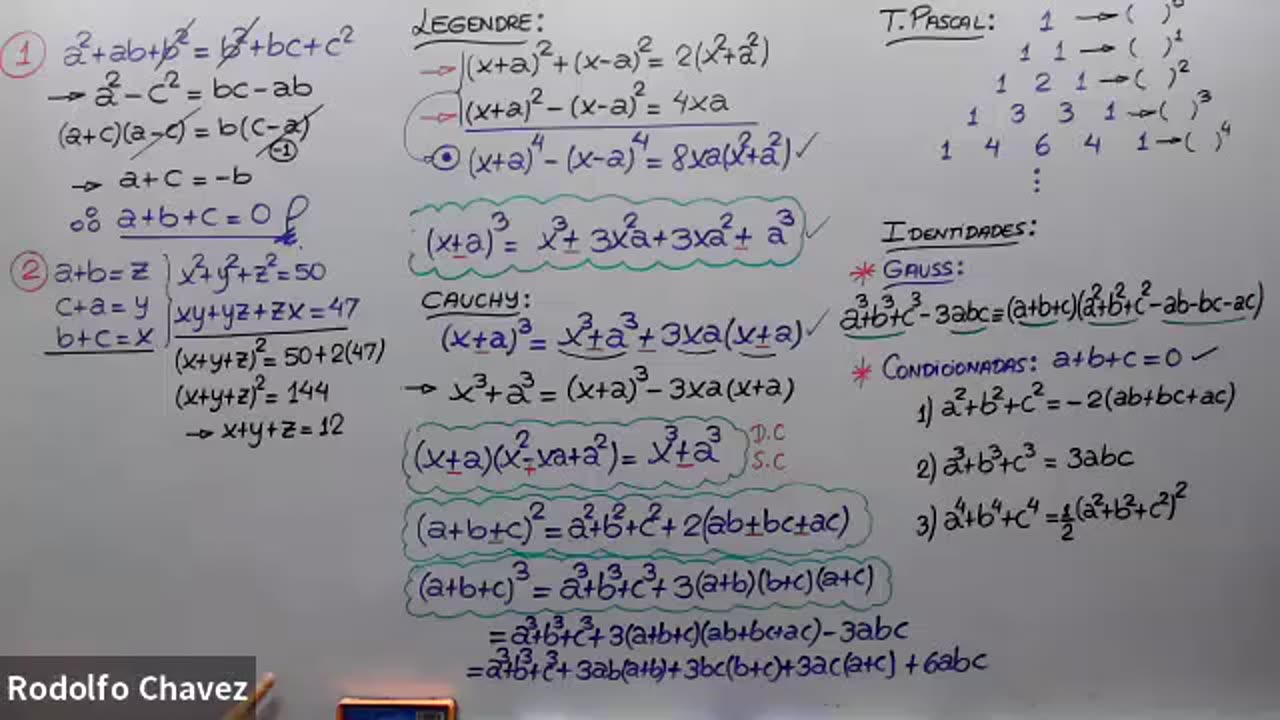 ① a²+ab+b² = b²+bc+c²
→ a²-c² = bc-ab
(a+c)(a-c) = b(c-a)
-1
→ a+c = -b
∴ a+b+c = 0
② a+b = z
c+a = y
b+c = x
x²+y²+z² = 50
xy+yz+zx = 47
(x+y+z)² = 50+2(47)
(x+y+z)² = 144
→ x+y+z = 12
LEGENDRE:
→ (x+a)²+(x-a)² = 2(x²+a²)
→ (x+a)²-(x-a)² = 4xa
(x+a)⁴-(x-a)⁴ = 8xa(x²+a²) ✓
(x±a)³ = x³± 3x²a+3xa²± a³ ✓
CAUCHY:
(x±a)³ = x³±a³±3xa(x±a) ✓
→ x³+a³ = (x+a)³-3xa(x+a)
(x±a)(x²∓xa+a²) = x³±a³
D.C
S.C
(a+b±c)² = a²+b²+c²+2(ab±bc±ac)
(a+b+c)³ = a³+b³+c³+3(a+b)(b+c)(a+c)
= a³+b³+c³+3(a+b+c)(ab+bc+ac)-3abc
= a³+b³+c³+3ab(a+b)+3bc(b+c)+3ac(a+c)+6abc
T. PASCAL: 1 → ( )⁰
1 1 → ( )¹
1 2 1 → ( )²
1 3 3 1 → ( )³
1 4 6 4 1 → ( )⁴
⋮
IDENTIDADES:
* GAUSS:
a³+b³+c³-3abc=(a+b+c)(a²+b²+c²-ab-bc-ac)
* CONDICIONADAS: a+b+c = 0 ✓
1) a²+b²+c² = -2(ab+bc+ac)
2) a³+b³+c³ = 3abc
3) a⁴+b⁴+c⁴ = ½(a²+b²+c²)²
Rodolfo Chavez